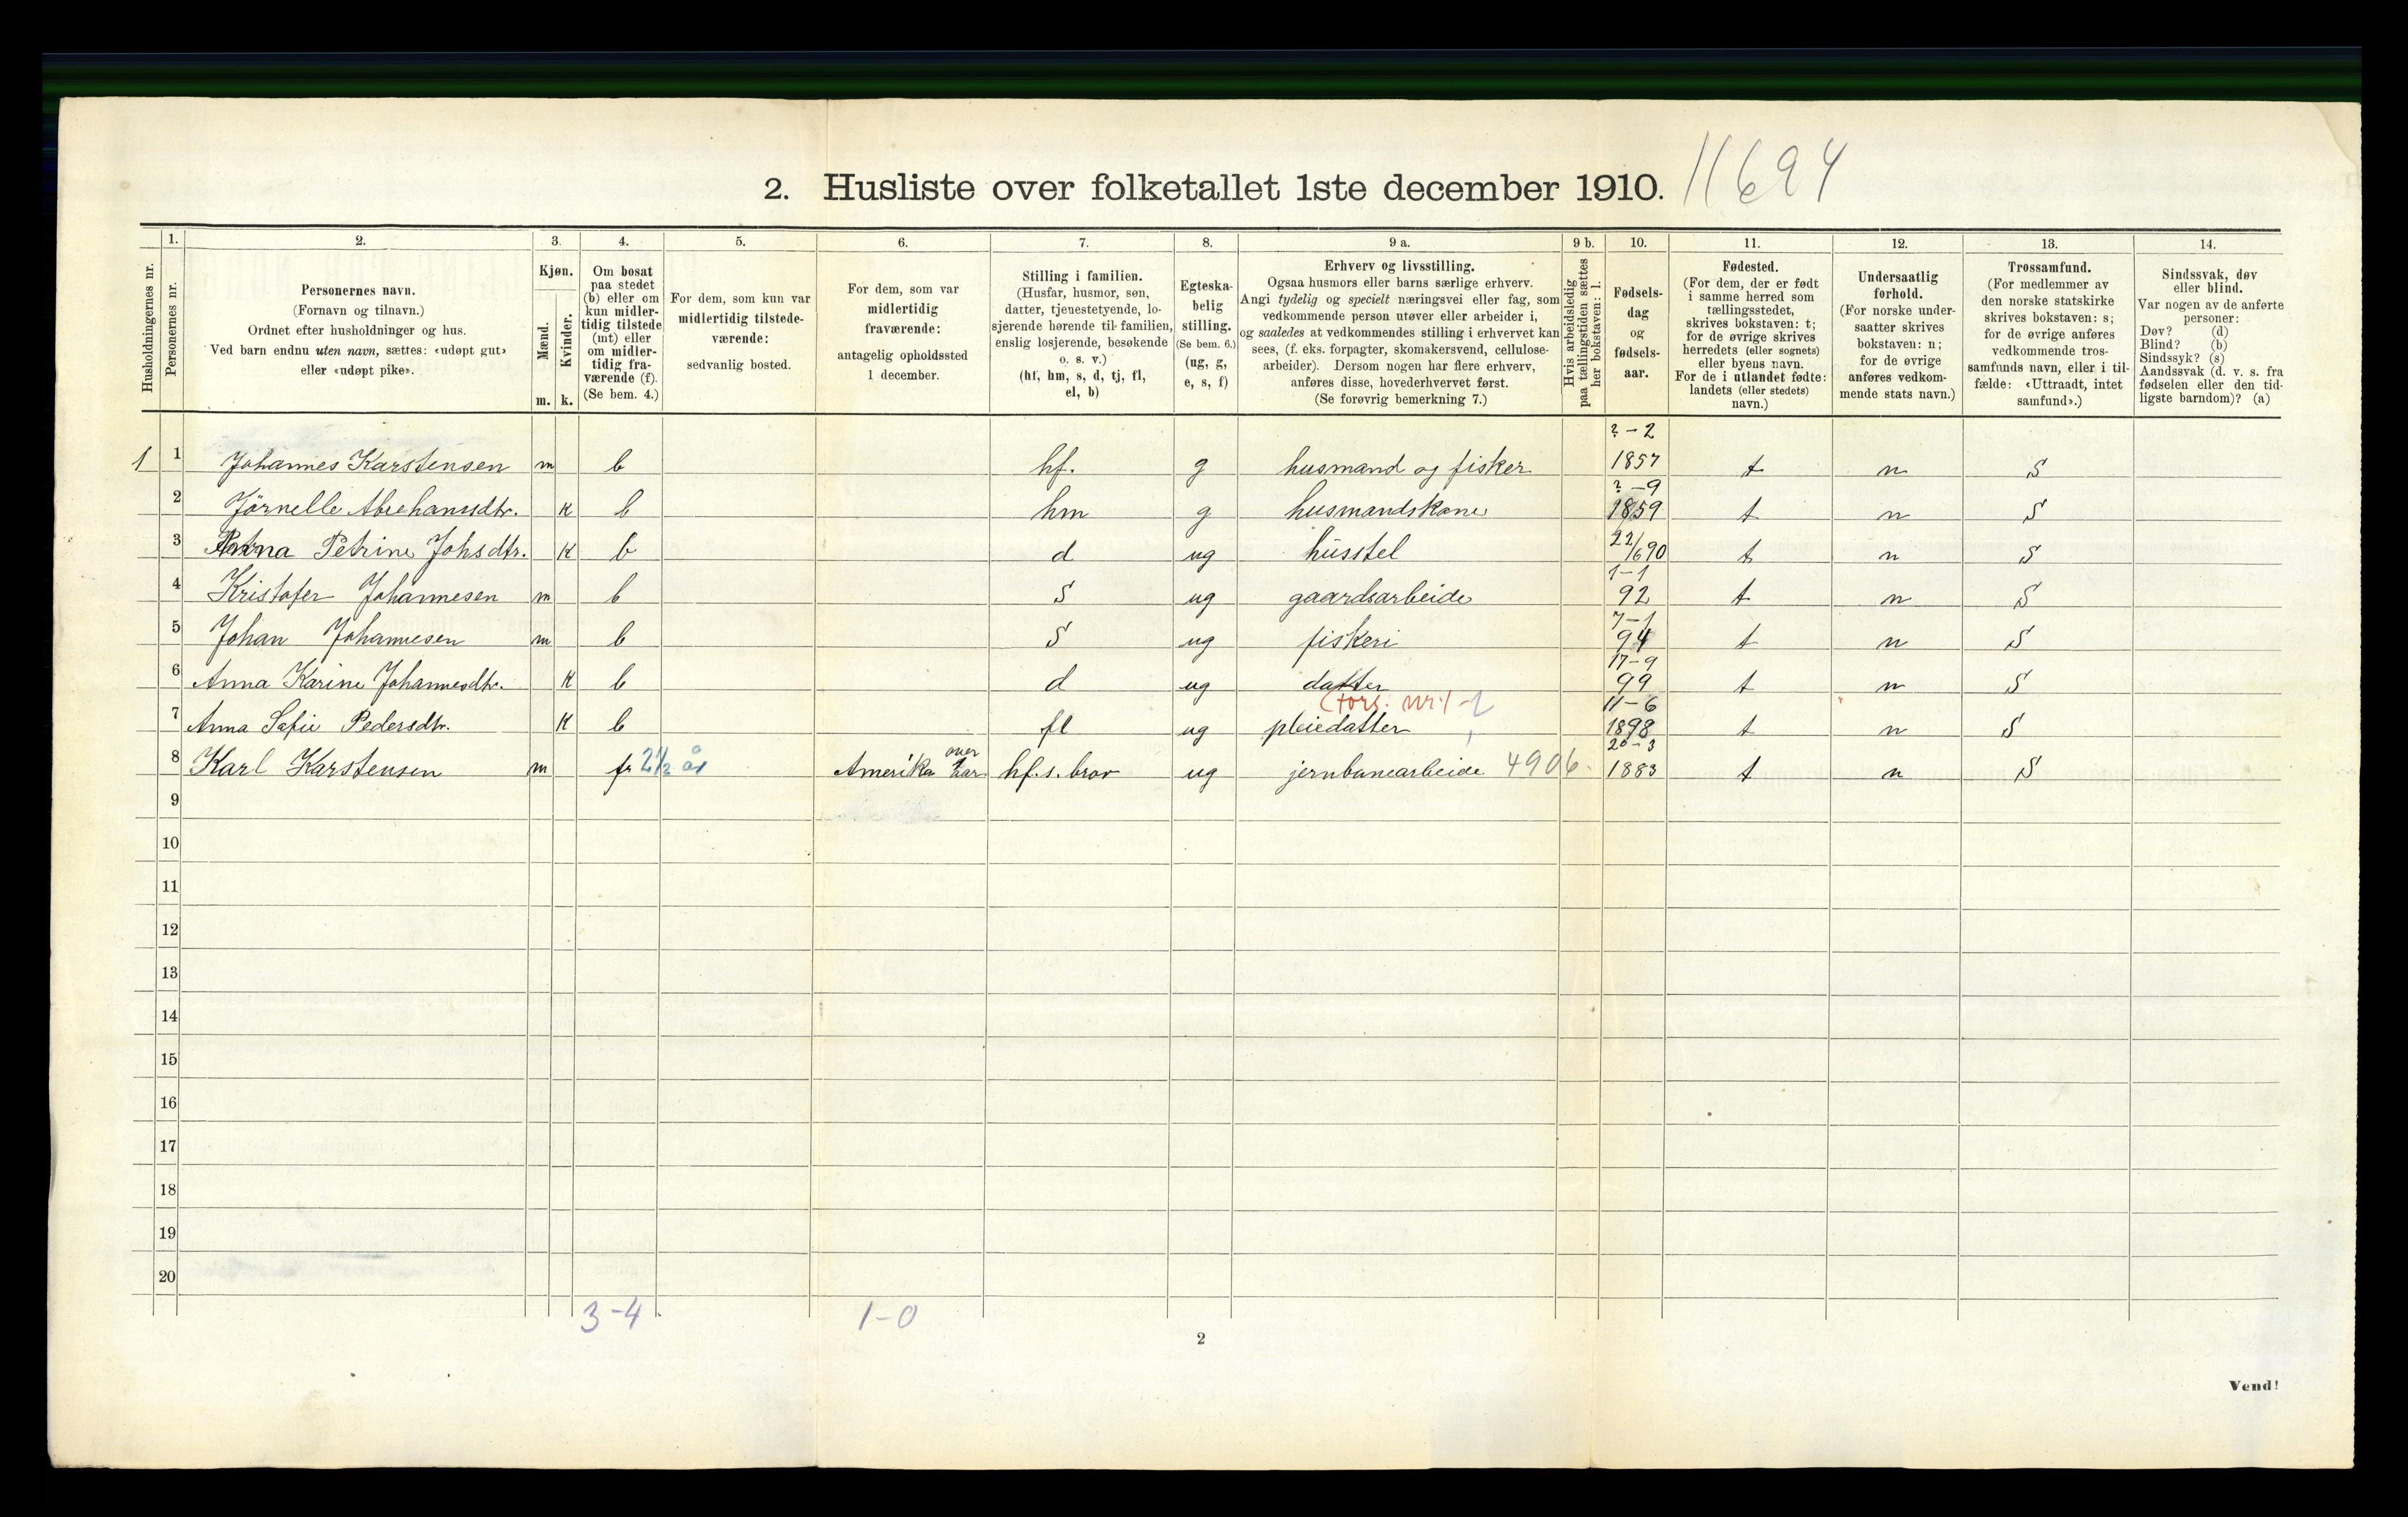 2. Husliste over folketallet 1ste december 1910. 11694
Husholdningernes nr.
1.
Personernes nr.
2.
Personernes navn.
(Fornavn og tilnavn.)
Ordnet efter husholdninger og hus.
Ved barn endnu uten navn, sættes: «udøpt gut»
eller «udøpt pike».
3.
Kjøn.
Mænd.
Kvinder.
m. k.
4.
Om bosat
paa stedet
(b) eller om
kun midler-
tidig tilstede
(mt) eller
om midler-
tidig fra-
værende (f).
(Se bem. 4.)
5.
For dem, som kun var
midlertidig tilstede-
værende:
sedvanlig bosted.
6.
For dem, som var
midlertidig
fraværende:
antagelig opholdssted
1 december.
7.
Stilling i familien.
(Husfar, husmor, søn,
datter, tjenestetyende, lo-
sjerende hørende til familien,
enslig losjerende, besøkende
o. s. v.)
(hf, hm, s, d, tj, fl,
el, b)
8.
Egteska-
belig
stilling.
(Se bem. 6.)
(ug, g,
e, s, f)
9 a.
Erhverv og livsstilling.
Ogsaa husmors eller barns særlige erhverv.
Angi tydelig og specielt næringsvei eller fag, som
vedkommende person utøver eller arbeider i,
og saaledes at vedkommendes stilling i erhvervet kan
sees, (f. eks. forpagter, skomakersvend, cellulose-
arbeider). Dersom nogen har flere erhverv,
anføres disse, hovederhvervet først.
(Se forøvrig bemerkning 7.)
9 b.
Hvis arbeidsledig
paa tællingstiden sættes
her bokstaven: l.
10.
Fødsels-
dag
og
fødsels-
aar.
11.
Fødested.
(For dem, der er født
i samme herred som
tællingsstedet,
skrives bokstaven: t;
for de øvrige skrives
herredets (eller sognets)
eller byens navn.
For de i utlandet fødte:
landets (eller stedets)
navn.)
12.
Undersaatlig
forhold.
(For norske under-
saatter skrives
bokstaven: n;
for de øvrige
anføres vedkom-
mende stats navn.)
13.
Trossamfund.
(For medlemmer av
den norske statskirke
skrives bokstaven: s;
for de øvrige anføres
vedkommende tros-
samfunds navn, eller i til-
fælde: «Uttraadt, intet
samfund».)
14.
Sindssvak, døv
eller blind.
Var nogen av de anførte
personer:
Døv? (d)
Blind? (b)
Sindssyk? (s)
Aandssvak (d. v. s. fra
fødselen eller den tid-
ligste barndom)? (a)
1 1 Johannes Karstensen m b hf. g husmand og fisker ?-2 1857 t n S
2 Jörnelle Abrehamsdtr. k b hm g husmandskone ?-9 1859 t n S
3 Anna Petrine Johsdtr. k b d ug husstel 22/6 90 t n S
4 Kristofer Johannesen m b S ug gaardsarbeide 1-1 92 t n S
5 Johan Johannesen m b S ug fiskeri 7-1 94 t n S
6 Anna Karine Johannesdtr. k b d ug datter 17-9 99 t n S
(fors. nr. 1
7 Anna Sofie Pedersdtr. k b fl ug pleiedatter 11-6 1898 t n S
8 Karl Karstensen m f 2 1/2 år Amerika over aar hf.s. bror ug jernbanearbeide 4906 20-3 1883 t n S
9
10
11
12
13
14
15
16
17
18
19
20
3-4 1-0
2
Vend!